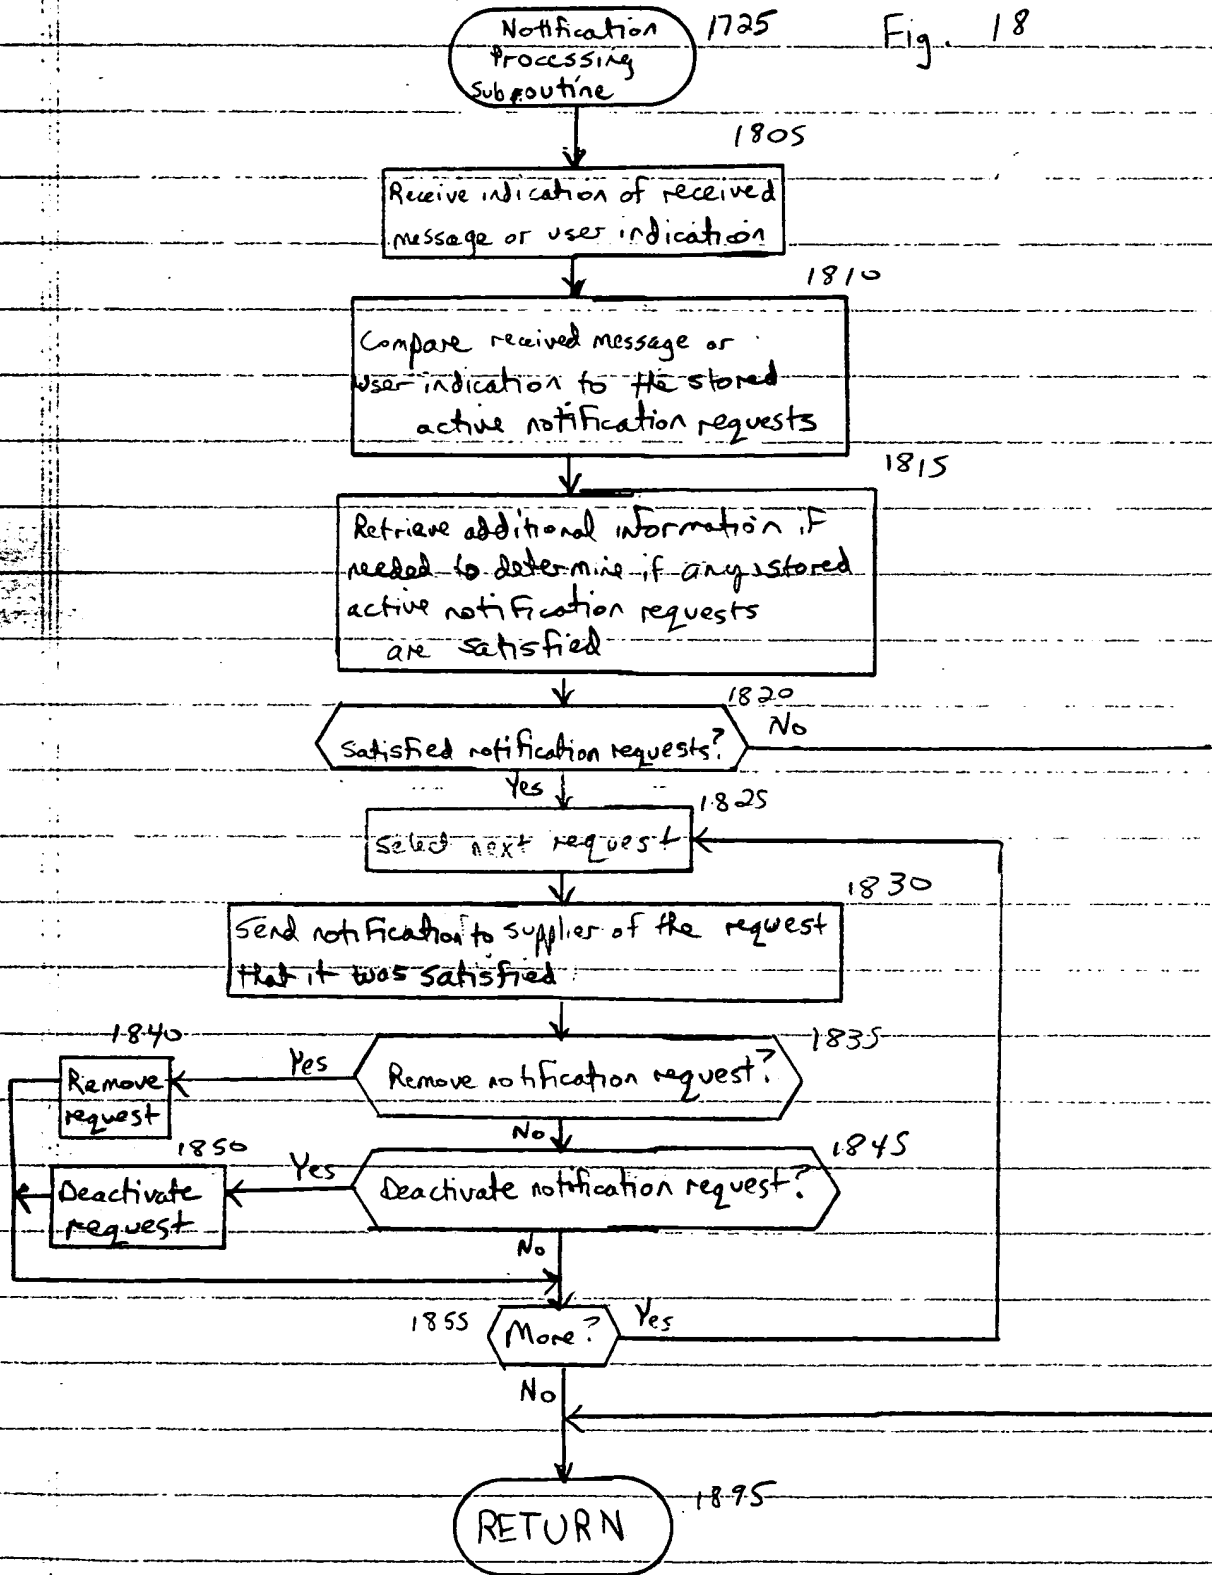 Notification
Processing
Subroutine
1725
Fig. 18
1805
Receive indication of received
message or user indication
1810
Compare received message or
user indication to the stored
active notification requests
1815
Retrieve additional information if
needed to determine if any stored
active notification requests
are satisfied
1820
Satisfied notification requests?
No
Yes
1825
Select next request
1830
Send notification to supplier of the request
that it was satisfied
1840
1835
Remove
request
Yes
Remove notification request?
No
1850
1845
Deactivate
request
Yes
Deactivate notification request?
No
1855
More?
Yes
No
RETURN
1895